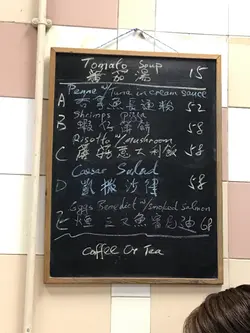 Tomato Soup
蕃茄湯 15
Penne w/Tuna in cream sauce
A 吞拿魚長通粉 52
B Shrimps Pizza
蝦仁薄餅 58
Risotto w/Mushroom
C 蘑菇意大利飯 58
Caesar Salad
D 凱撒沙律 58
Eggs Benedict w/smoked Salmon
E 煙三文魚 68
Coffee Or Tea